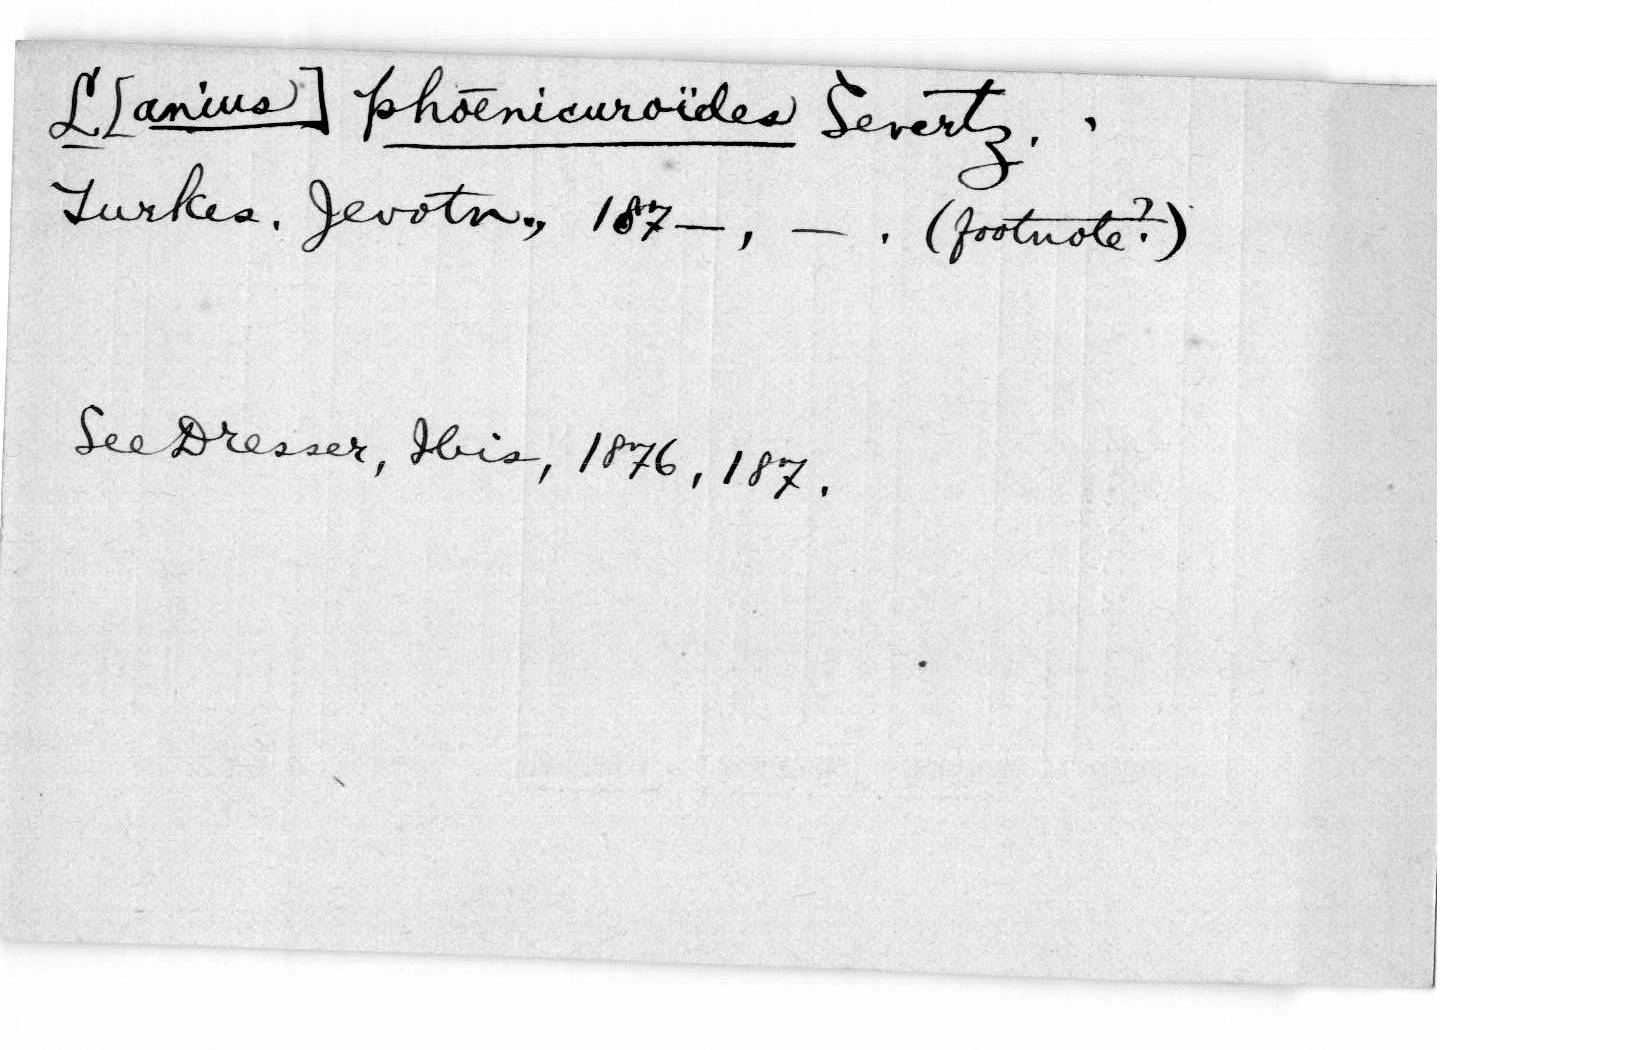 L[anius] phoenicuroïdes Severtz.
Turkes. Jevotn., 187—, — . (footnote?)
See Dresser, Ibis, 1876, 187.